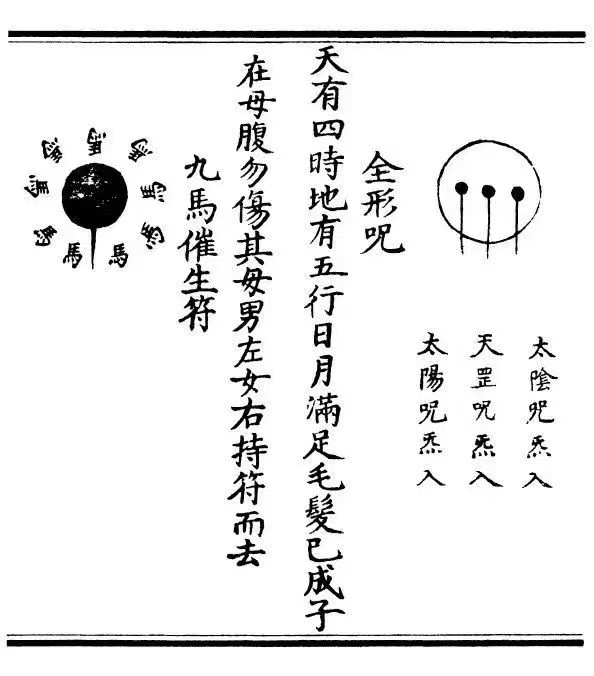 太陰呪炁入
天罡呪炁入
太陽呪炁入
全形呪
天有四時地有五行日月滿足毛髮已成子
在母腹勿傷其母男左女右持符而去
九馬催生符
馬
馬
馬
馬
馬
馬
馬
馬
馬